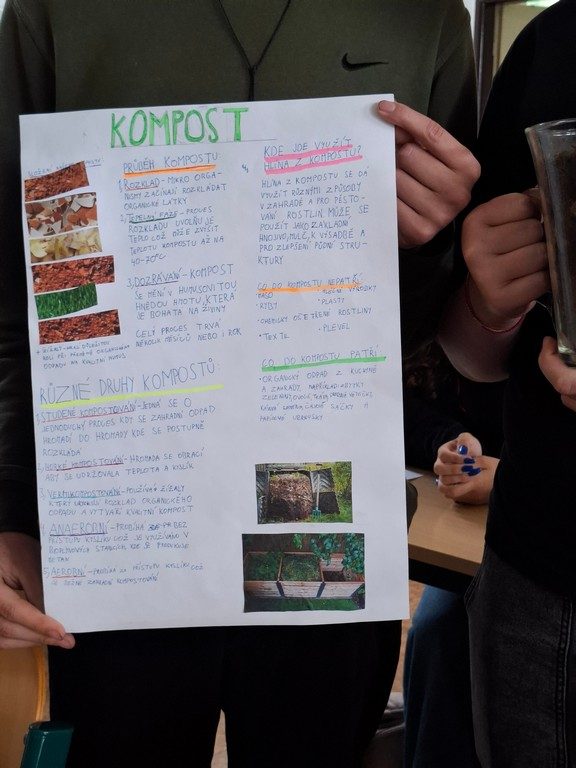 KOMPOST
PRŮBĚH KOMPOSTU:
1, ROZKLAD - MIKRO ORGA-
NISMY ZAČÍNAJÍ ROZKLÁDAT
ORGANICKÉ LÁTKY
2, TEPELNÁ FÁZE - PROCES
ROZKLADU UVOLŇUJE
TEPLO COŽ MŮŽE ZVÝŠIT
TEPLOTU KOMPOSTU AŽ NA
40-70°C
3, DOZRÁVÁNÍ - KOMPOST
SE MĚNÍ V HUMUSOVITOU
HNĚDOU HMOTU, KTERÁ
JE BOHATÁ NA ŽIVINY
CELÝ PROCES TRVÁ
NĚKOLIK MĚSÍCŮ NEBO I ROK
+ ŽÍŽALY - HRAJÍ DŮLEŽITOU
ROLI PŘI PŘEMĚNĚ ORGANICKÉHO
ODPADU NA KVALITNÍ HUMUS
RŮZNÉ DRUHY KOMPOSTŮ:
1, STUDENÉ KOMPOSTOVÁNÍ - JEDNÁ SE O
JEDNODUCHÝ PROCES KDY SE ZAHRADNÍ ODPAD
HROMADÍ DO HROMADY KDE SE POSTUPNĚ
ROZKLÁDÁ
2, HORKÉ KOMPOSTOVÁNÍ - HROMADA SE OBRACÍ
ABY SE UDRŽOVALA TEPLOTA A KYSLÍK
3, VERMIKOMPOSTOVÁNÍ - POUŽÍVÁ ŽÍŽALY
ROZKLAD ORGANICKÉHO
ODPADU A VYTVÁŘÍ KVALITNÍ KOMPOST
4, ANAEROBNÍ - PROBÍHÁ BEZ
PŘÍSTUPU KYSLÍKU COŽ JE VYUŽÍVÁNO V
BIOPLYNOVÝCH STANICÍCH KDE SE PRODUKUJE
METAN
5, AEROBNÍ - PROBÍHÁ ZA PŘÍSTUPU KYSLÍKU COŽ
JE BĚŽNÉ ZAHRADNÍ KOMPOSTOVÁNÍ
KDE JDE VYUŽÍT
HLÍNA Z KOMPOSTU?
HLÍNA Z KOMPOSTU SE DÁ
VYUŽÍT RŮZNÝMI ZPŮSOBY
V ZAHRADĚ A PRO PĚSTO-
VÁNÍ ROSTLIN. MŮŽE SE
POUŽÍT JAKO ZÁKLADNÍ
HNOJIVO, MULČ, K VÝSADBĚ A
PRO ZLEPŠENÍ PŮDNÍ STRU-
KTURY
CO DO KOMPOSTU NEPATŘÍ:
• MASO • MLÉČNÉ VÝROBKY
• RYBY • PLASTY
• CHEMICKY OŠETŘENÉ ROSTLINY
• TEXTIL • PLEVEL
CO DO KOMPOSTU PATŘÍ
• ORGANICKÝ ODPAD Z KUCHYNĚ
A ZAHRADY NAPŘÍKLAD: ZBYTKY
ZELENINY, OVOCE, TRÁVA,
KÁVOVÁ SEDLINA, ČAJOVÉ SÁČKY A
PAPÍROVÉ UBROUSKY